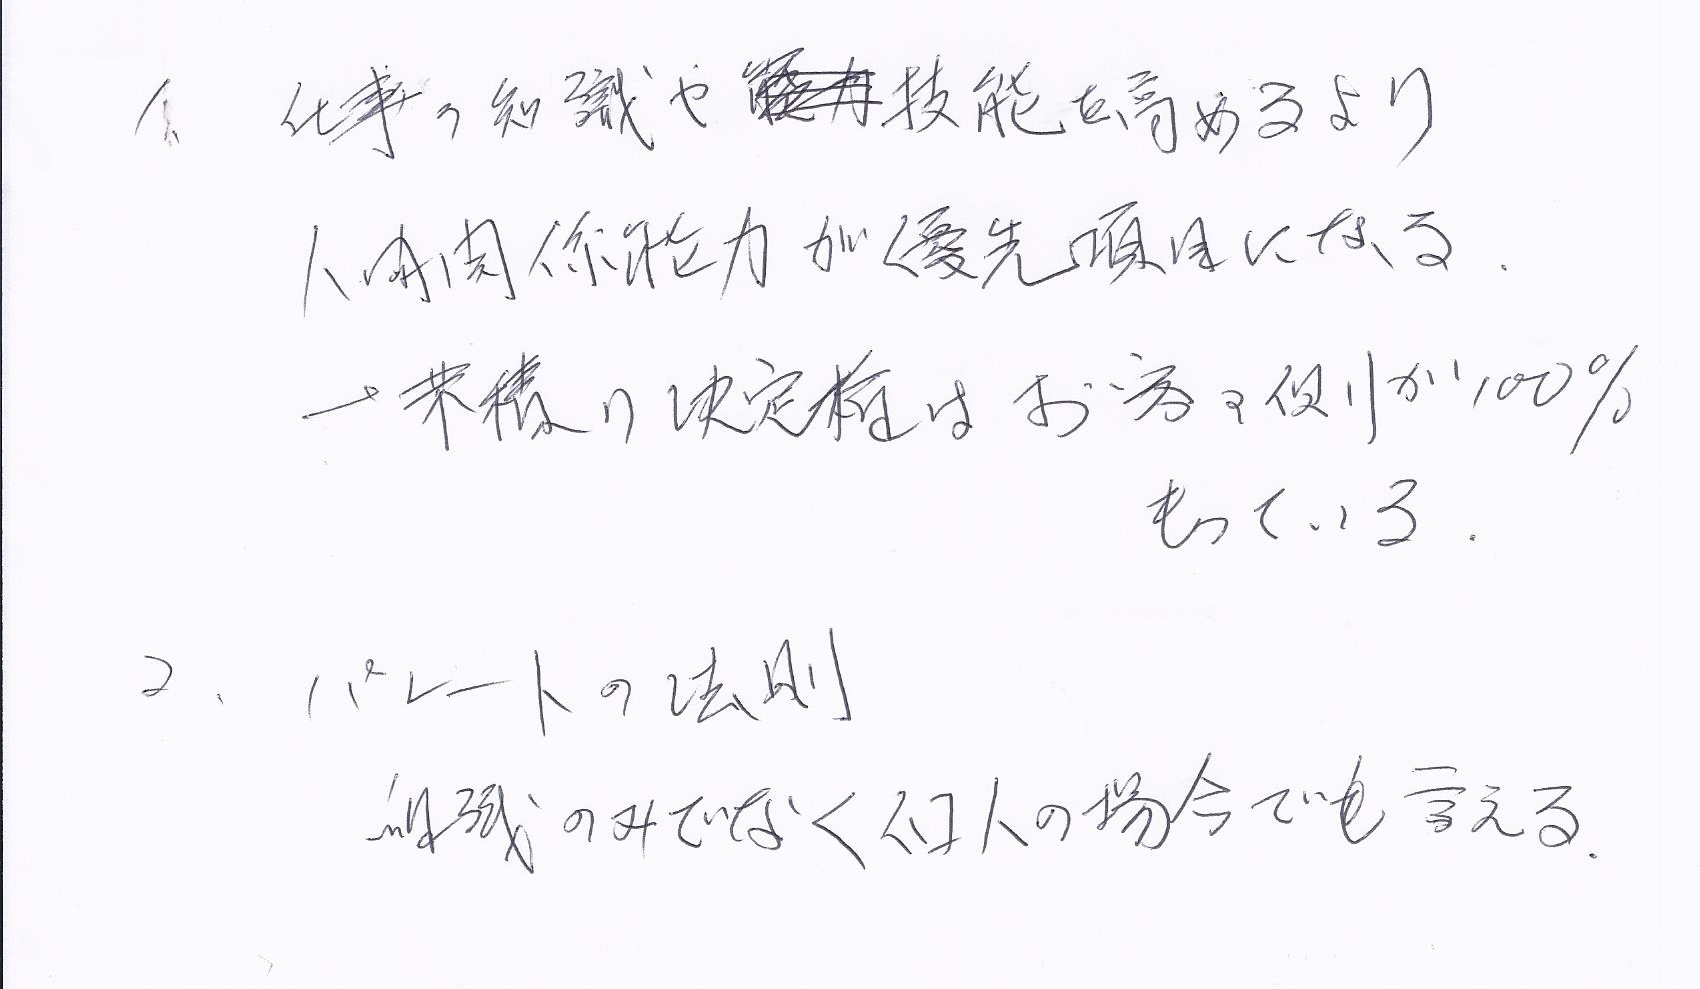 1. 仕事の知識や技能を高めるより
人間関係能力が優先項目になる.
→業績の決定権はお客の側が100%
もっている.
2. パレートの法則
組織のみでなく個人の場合でも言える.